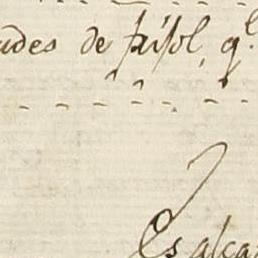 udes de frisol, q.^e
Es alca